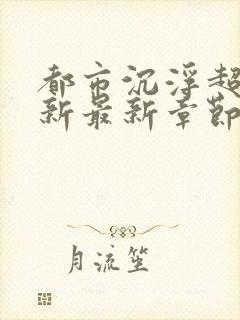 都市沉浮超
新最新章节
月流笙